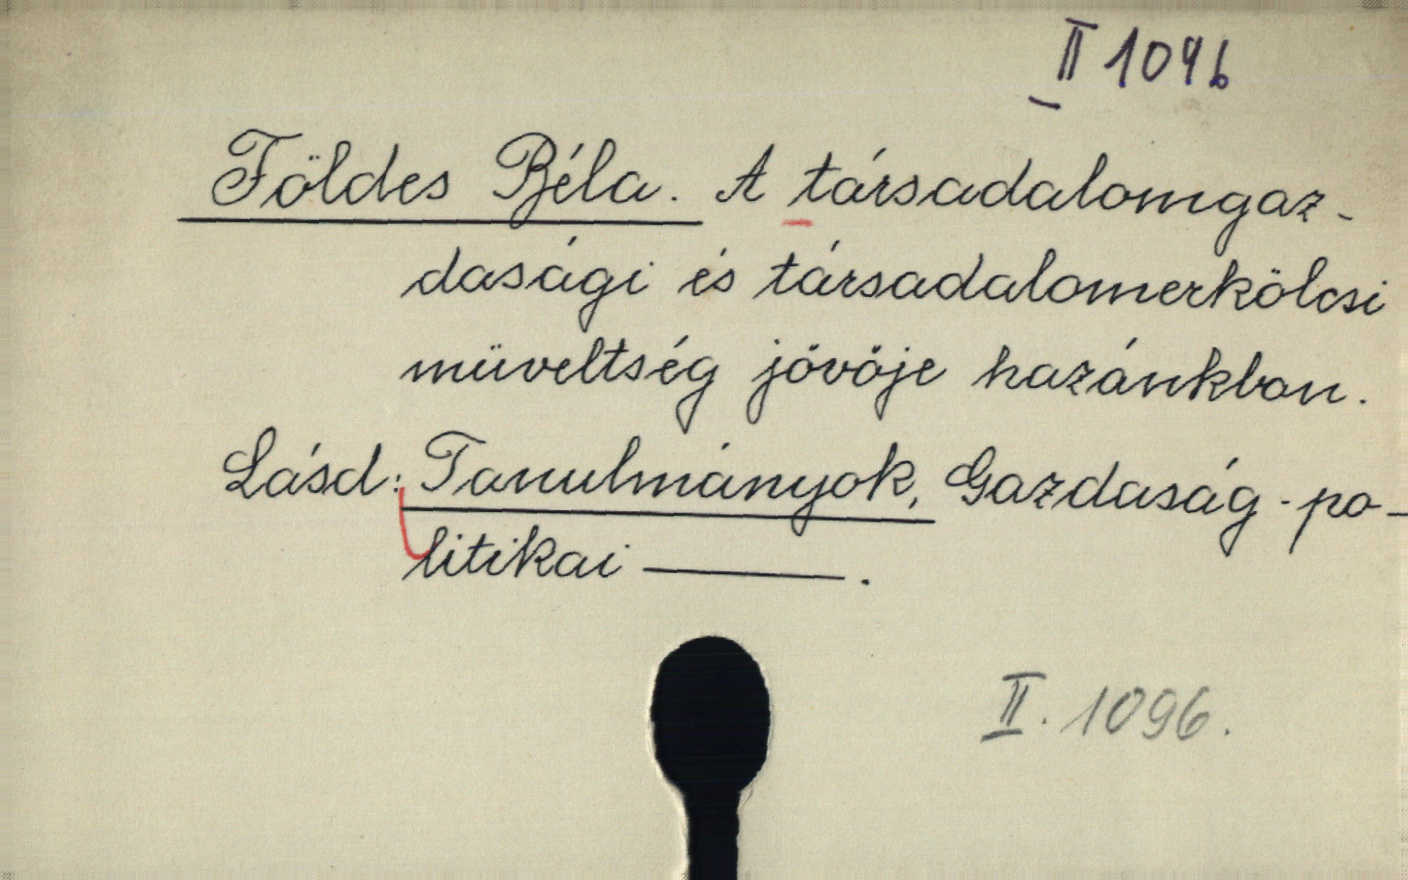 II 1096
Földes Béla. A társadalomgaz-
dasági és társadalomerkölcsi
müveltség jövöje hazánkban.
Lásd: Tanulmányok, Gazdaság-po-
litikai ———.
II. 1096.